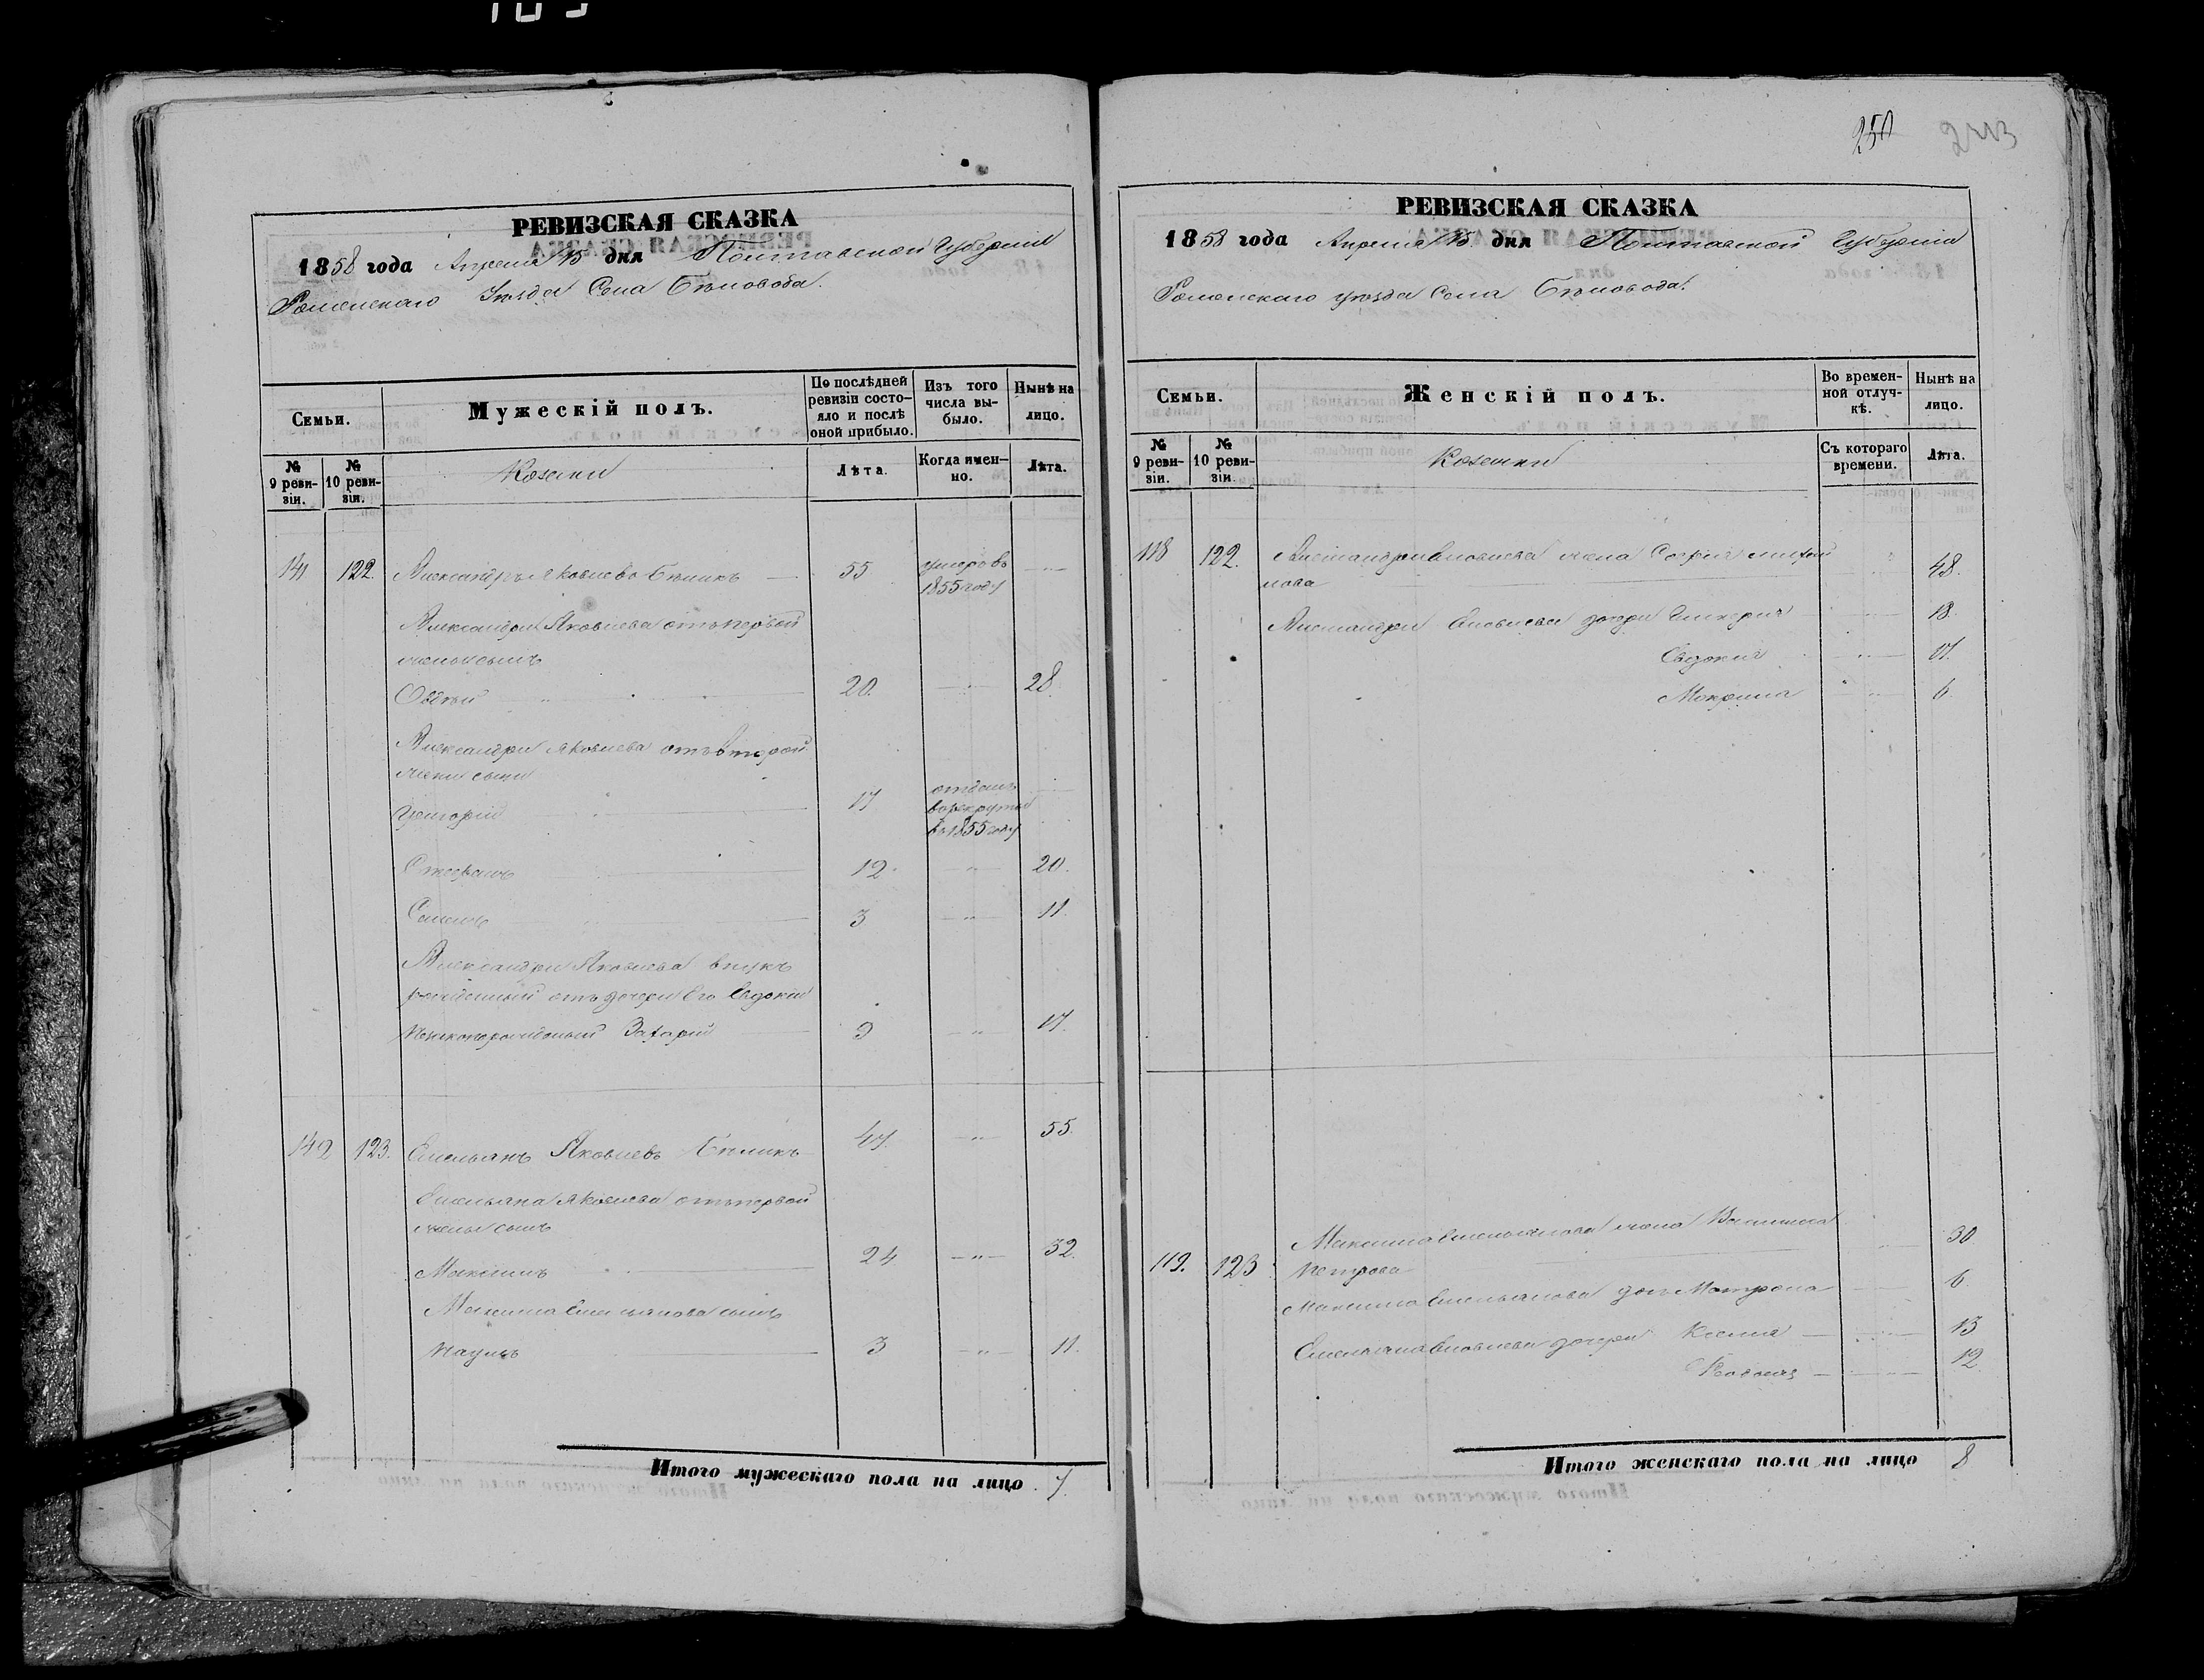 250
РЕВИЗСКАЯ СКАЗКА
1858 года Апреля 15 дня Полтавской Губерніи
Роменскаго Уѣзда Села Бѣловода.
Семьи.
Мужескій полъ.
По послѣдней ревизіи состояло и послѣ оной прибыло.
Изъ того числа выбыло.
Нынѣ на лицо.
№ 9 ревизіи.
№ 10 ревизіи.
Козаки
Лѣта.
Когда именно.
Лѣта.
141 122. Александръ Яковлевъ Бѣликъ 55 умеръ въ 1855 году
Александра Яковлева отъ первой
жены сынъ
Овдѣй 20. 28.
Александра Яковлева отъ второй
жены сыны
Григорій 17 отданъ в рекруты въ 1855 году
Стефанъ 12 20.
Семенъ 3 11.
Александра Яковлева внукъ
рожденный отъ дочери Его Евдокіи
Захарій 9 17.
142 123. Емельянъ Яковлевъ Бѣликъ 47 55.
Емельяна Яковлева отъ первой
жены сынъ
Максимъ 24 32.
Максима Емельянова сынъ
Наумъ 3 11.
Итого мужескаго пола на лицо 7.
РЕВИЗСКАЯ СКАЗКА
1858 года Апреля 15. дня Полтавской Губерніи
Роменскаго уѣзда Села Бѣловода.
Семьи.
Женскій полъ.
Во временной отлучкѣ.
Нынѣ на лицо.
№ 9 ревизіи.
№ 10 ревизіи.
Козачки
Съ котораго времени.
Лѣта.
118 122. жена Софія 48.
дочери Гликерія 18.
Евдокія 17.
Макрина 6
119. 123 Максима Емельянова жена Василиса 30
Петрова
Максима Емельянова дочь Матрона 6.
дочери Ксенія 13
12.
Итого женскаго пола на лицо 8